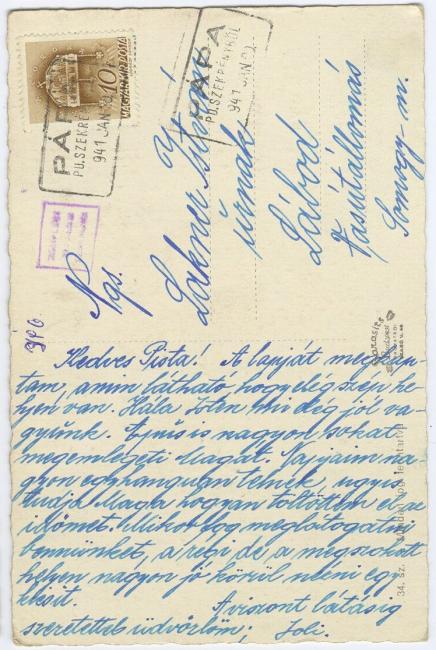 MAGYAR KIR. POSTA
10f
PÁPA
PU.SZEKRÉNYRŐL
941 JAN
PÁPA
PU.SZEKRÉNYRŐL
941 JAN
Ngs.
Lakner István
úrnak
Lábod
Vasútállomás
Somogy-m.
Kedves Pista! A lapját megkap-
tam, amin látható hogy elég szép he-
lyen van. Hála Isten mi még jól va-
gyunk. Ernő is nagyon sokat
megemlegeti Magát. Napjaim na
gyon egyhangúan telnek, ugyis
tudja Maga hogyan töltöttem
időmet. Mikor fog meglátogatni
bennünket, a régi de, a megszokott
helyen nagyon jó körül nézni egy
kicsit.
A viszont látásig
szeretettel üdvözlöm; Joli.
Barasits
Budapest
34. sz.